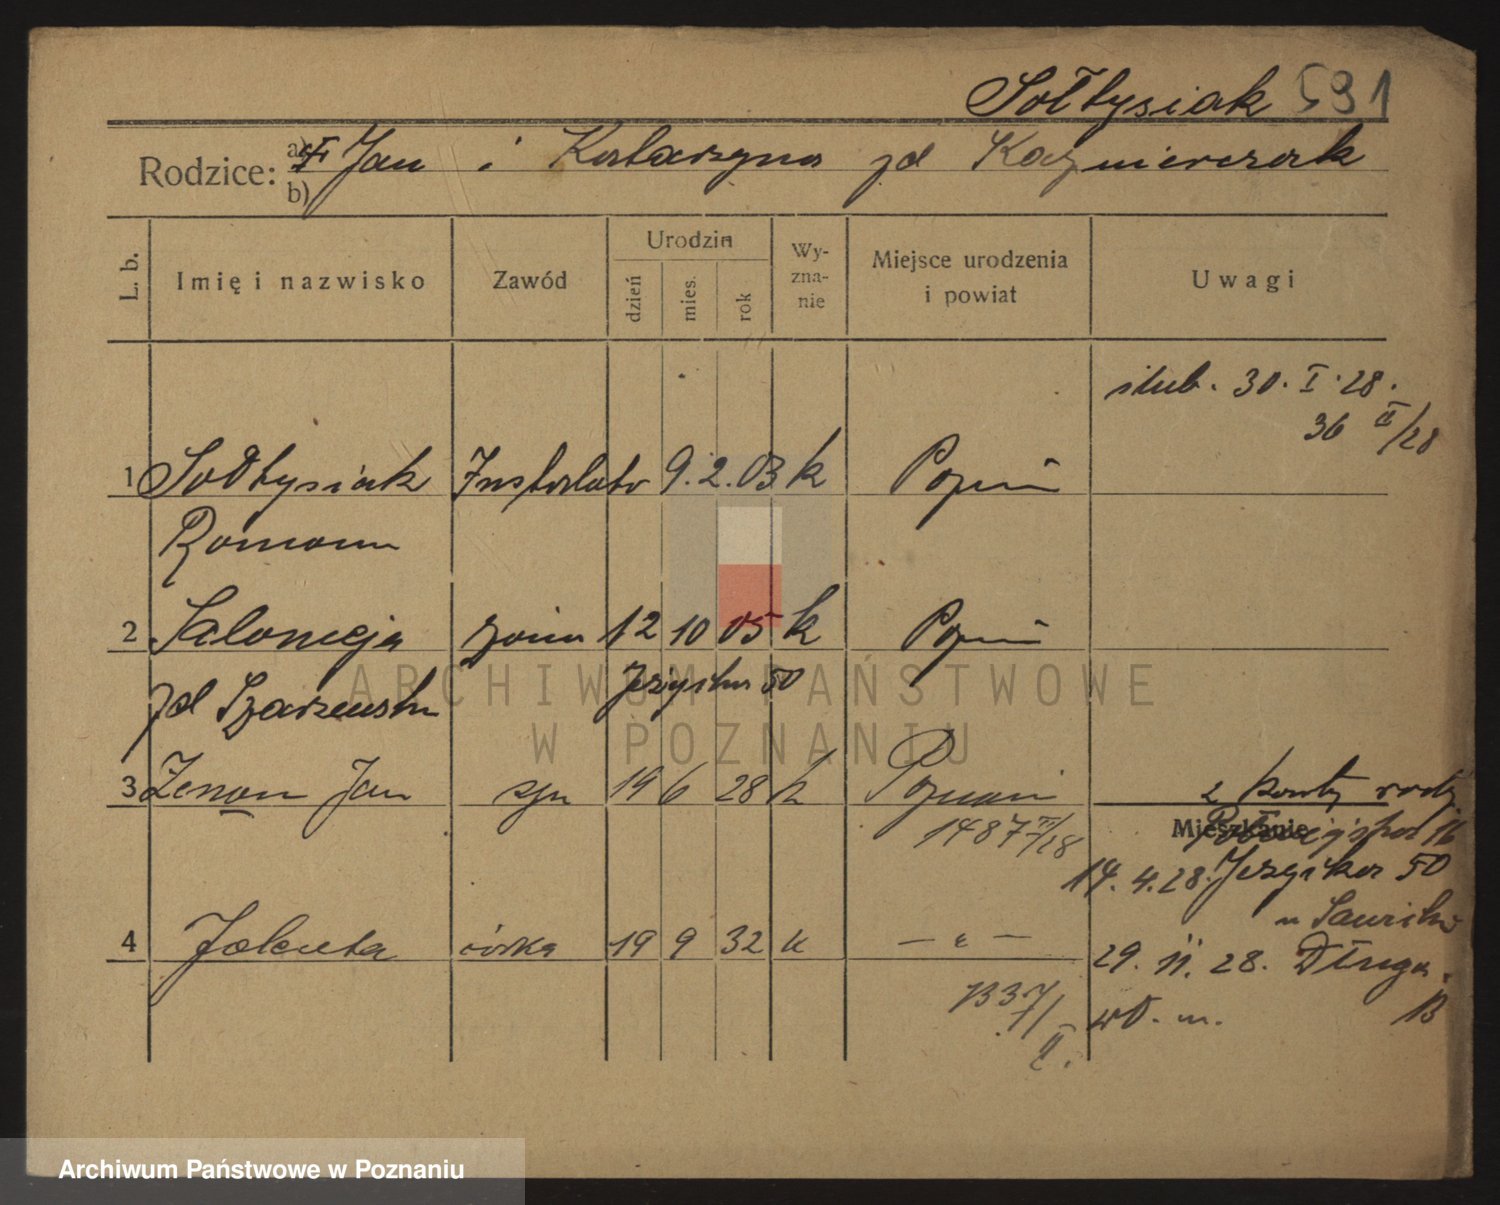 Sołtysiak 531
Rodzice: a) Jan i Katarzyna zd Kaźmierczak
b)
L. b. Imię i nazwisko Zawód Urodzin dzień mies. rok Wyznanie Miejsce urodzenia i powiat Uwagi
ślub. 30. I. 28.
36 II/28
1 Sołtysiak Instalator 9. 2. 03 k Pozn
Roman
2 Salomeja żona 12 10 05 k Pozn
Jeżycka 50
zd Szarzewska
3 Zenon Jan syn 19 6 28 k Poznań
z karty rodz.
1487 /28
Mieszkanie 16
14. 4. 28. Jeżycka 50
4 Jolenta córka 19 9 32 k — " —
29. 11. 28. Długa
13
1337/
wł. m.
ARCHIWUM PAŃSTWOWE
W POZNANIU
Archiwum Państwowe w Poznaniu